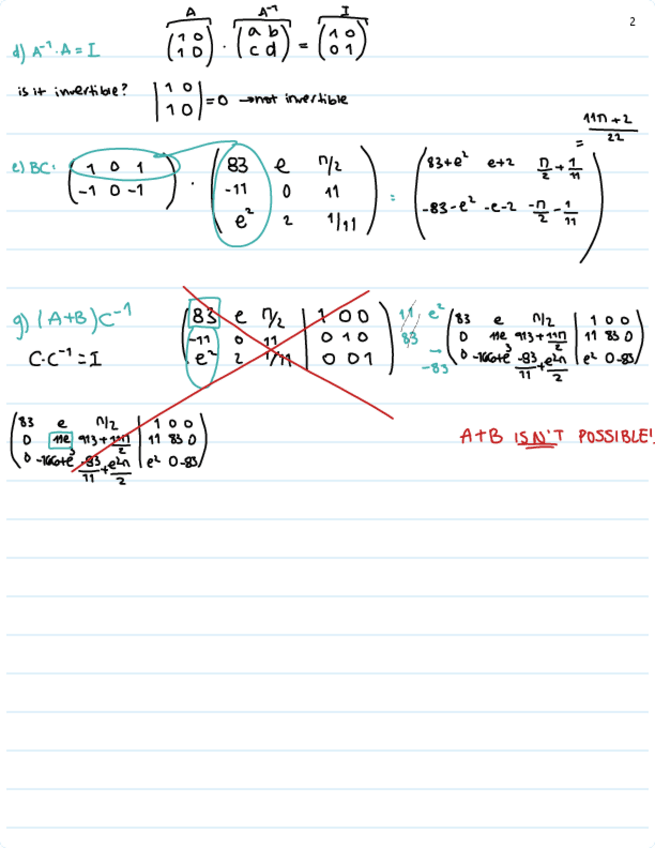 2
A A⁻¹ I
d) A⁻¹·A = I (1 0 / 1 0) · (a b / c d) = (1 0 / 0 1)
is it invertible? |1 0 / 1 0| = 0 → not invertible
= 11π+2 / 22
e) BC: (1 0 1 / -1 0 -1) · (83 e π/2 / -11 0 11 / e² 2 1/11) = (83+e² e+2 π/2+1/11 / -83-e² -e-2 -π/2-1/11)
g) (A+B)C⁻¹ (83 e π/2 | 1 0 0 / -11 0 11 | 0 1 0 / e² 2 1/11 | 0 0 1) 11, e² 83 → -83 (83 e π/2 | 1 0 0 / 0 11e 913+11π/2 | 11 83 0 / 0 -166+e³ -83/11+e²π/2 | e² 0 -83)
C·C⁻¹ = I
(83 e π/2 | 1 0 0 / 0 11e 913+11π/2 | 11 83 0 / 0 -166+e³ -83/11+e²π/2 | e² 0 -83)
A+B ISN'T POSSIBLE!